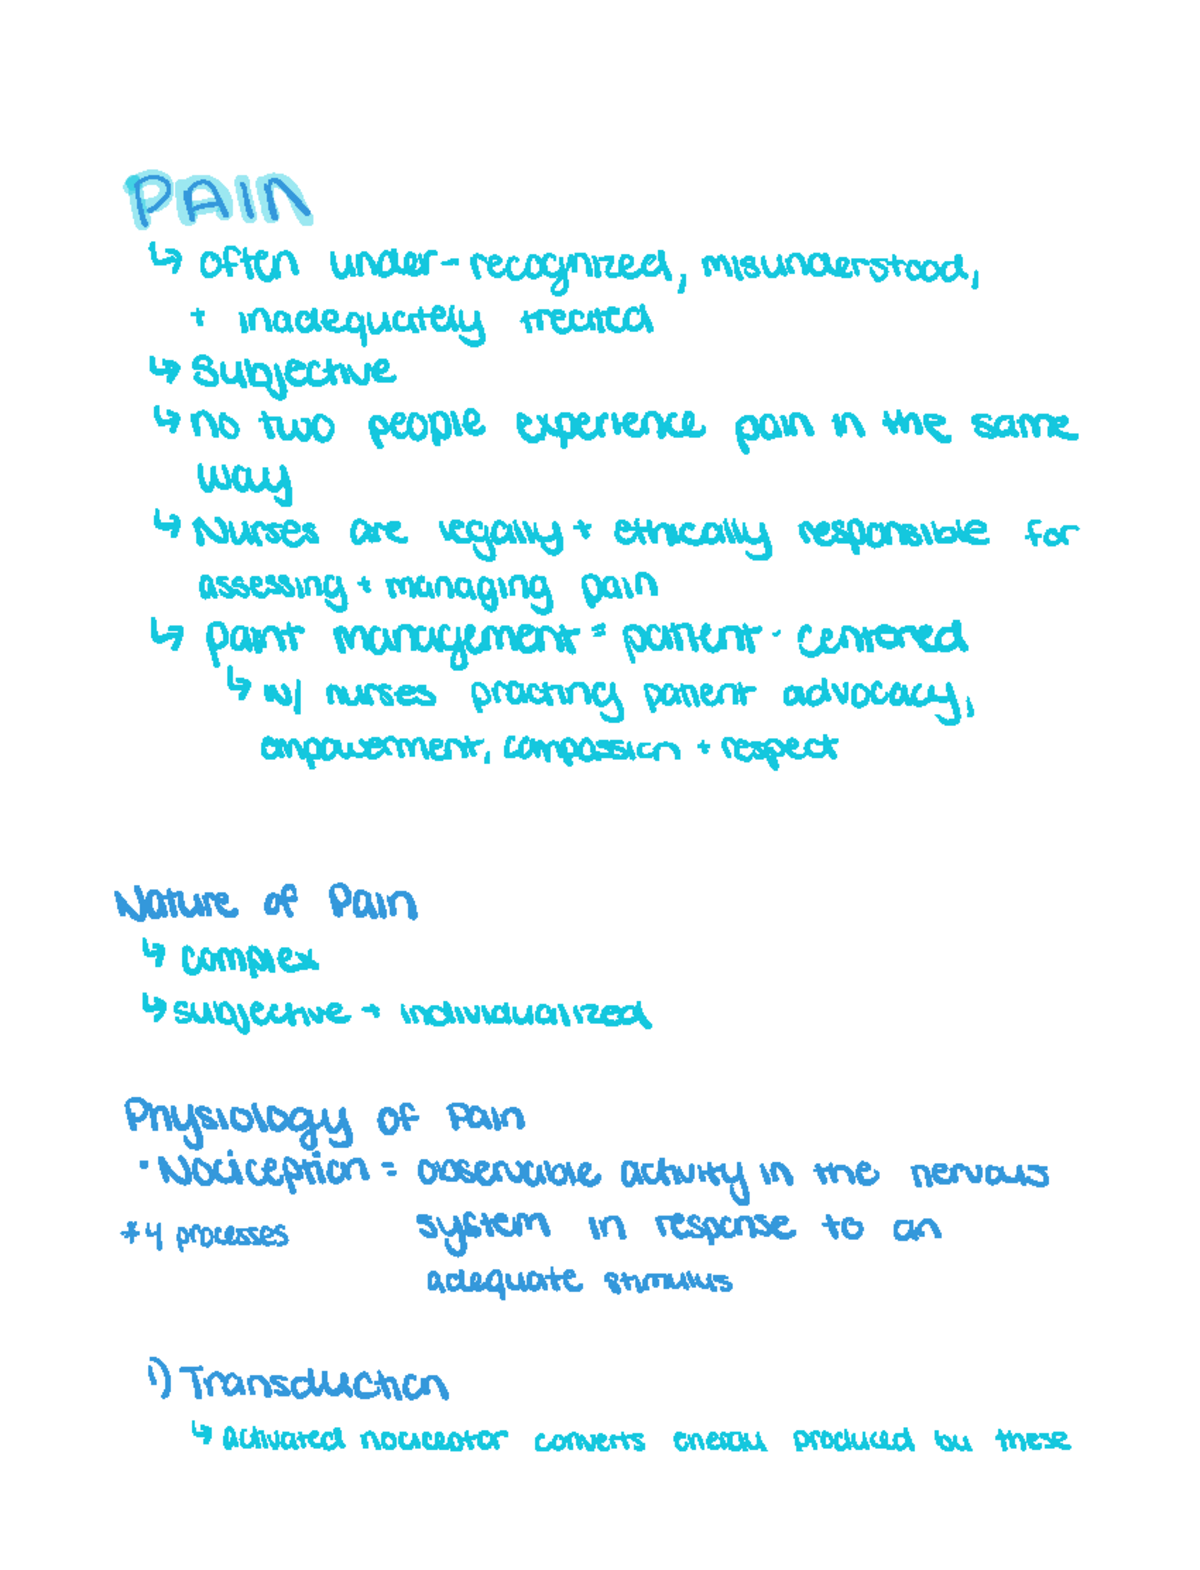 PAIN
↳ often under-recognized, misunderstood,
+ inadequately treated
↳ Subjective
↳ no two people experience pain in the same
way
↳ Nurses are legally + ethically responsible for
assessing + managing pain
↳ paint management = patient-centered
↳ w/ nurses practing patient advocacy,
empowerment, compassion + respect
Nature of Pain
↳ complex
↳ subjective + individualized
Physiology of Pain
• Nociception = observable activity in the nervous
* 4 processes system in response to an
adequate stimulus
1) Transduction
↳ activated nociceptor converts energy produced by these